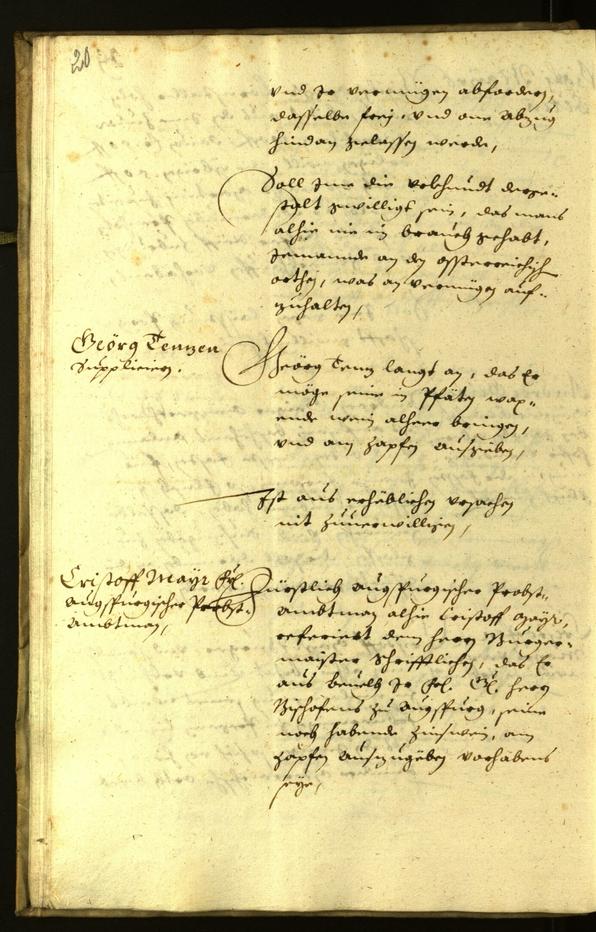 20
vnd Ir vermügen abfordern,
dasselbe frej, vnd one Abzug
hindan gelassen werde,
Soll Ime die vrkhundt derge„
stalt zwilligt sein, das mans
alhie nie in brauch gehabt,
Jemannde an den Össterreichisch
orthen, was an vermügen auf„
zuhalten,
Geörg Tennen
Supplicien.
Geörg Tenn langt an, das Er
möge seine in Pfäten wax„
ende wein alheer bringen,
vnd am Zapfen außgeben,
Ist aus erhäblichen vrsachen
nit Zuuerwilligen,
Cristoff Mayr Frl.
Augspurgischer Probst„
Ambtman,
Fürstlich Augspurgischer Probst„
Ambtman alhie Cristoff Mayr,
referiert dem Herrn Burger„
maister Schrifftlichen, das Er
aus beuelch Ir Frl. Gl. Herrn
Bischofens zu Augspurg, seine
noch habende Zinswein, am
Zapfen Auszugeben vorhabens
seye,